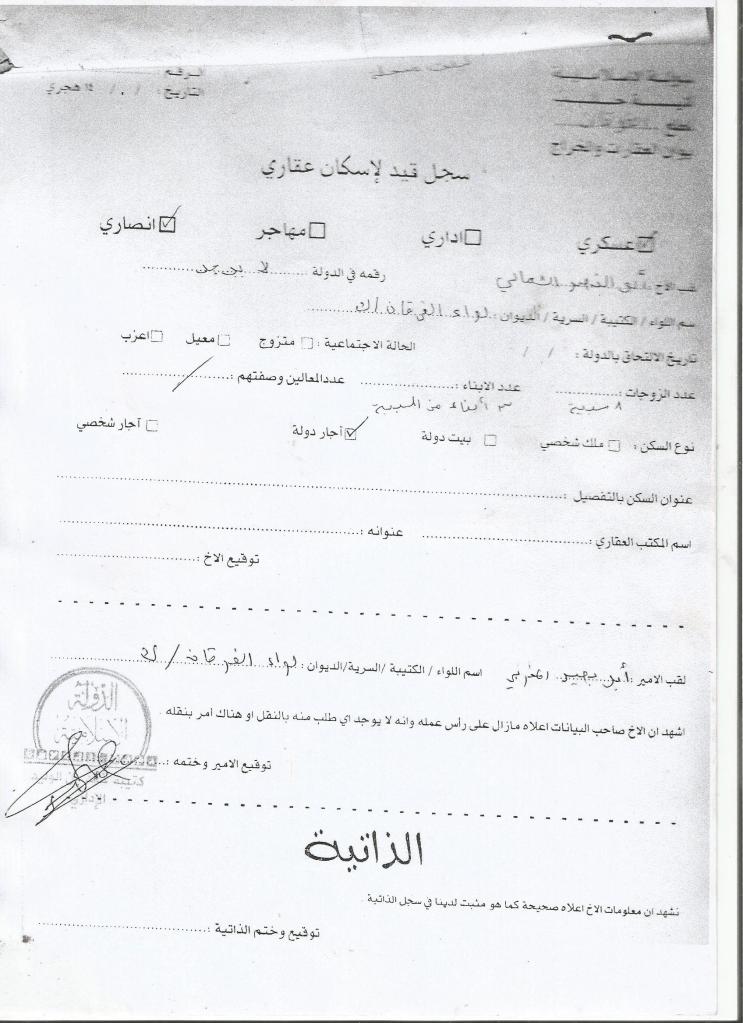 الرقم
التاريخ : / / ١٤ هجري
ديوان العقارات والخراج
سجل قيد لإسكان عقاري
☑ عسكري ☐ اداري ☐ مهاجر ☑ انصاري
لقب الاخ رقمه في الدولة لا
اسم اللواء / الكتيبة / السرية / الديوان : لواء الفرقان / ك
تاريخ الالتحاق بالدولة : / / الحالة الاجتماعية : ☐ متزوج ☐ معيل ☐ اعزب
عدد الزوجات : عدد الابناء : عدد المعالين وصفتهم :
٣ أبناء من
نوع السكن : ☐ ملك شخصي ☐ بيت دولة ☑ آجار دولة ☐ آجار شخصي
عنوان السكن بالتفصيل :
اسم المكتب العقاري : عنوانه :
توقيع الاخ :
لقب الامير : أبو المغربي اسم اللواء / الكتيبة / السرية/الديوان : لواء الفرقان / ك
اشهد ان الاخ صاحب البيانات اعلاه مازال على رأس عمله وانه لا يوجد اي طلب منه بالنقل او هناك أمر بنقله .
توقيع الامير وختمه :
الدولة
الإسلامية
كتيبة
الذاتية
نشهد ان معلومات الاخ اعلاه صحيحة كما هو مثبت لدينا في سجل الذاتية .
توقيع وختم الذاتية :